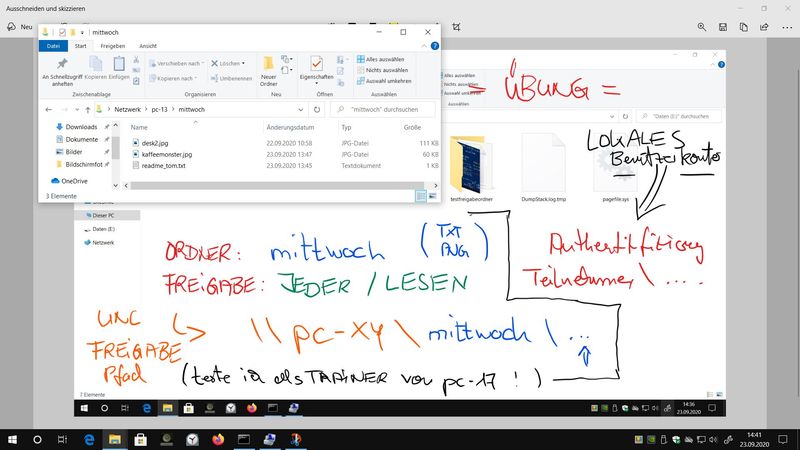 Ausschneiden und skizzieren
Neu
mittwoch
Datei Start Freigeben Ansicht
An Schnellzugriff anheften
Verschieben nach
Kopieren nach
Löschen
Umbenennen
Neuer Ordner
Eigenschaften
Alles auswählen
Nichts auswählen
Auswahl umkehren
Zwischenablage Organisieren Neu Öffnen Auswählen
Netzwerk › pc-13 › mittwoch
"mittwoch" durchsuchen
Name Änderungsdatum Typ Größe
Downloads
Dokumente
Bilder
Bildschirmfot
OneDrive
desk2.jpg 23.09.2020 10:58 JPG-Datei 111 KB
kaffeemonster.jpg 22.09.2020 13:47 JPG-Datei 60 KB
readme_tom.txt 23.09.2020 13:45 Textdokument 1 KB
3 Elemente
Alles auswählen
Nichts auswählen
Auswahl umkehren
= ÜBUNG =
"Daten (E:)" durchsuchen
LOKALES
Benutzerkonto
testfreigabeordner
DumpStack.log.tmp
pagefile.sys
Dieser PC
Daten (E:)
Netzwerk
ORDNER: mittwoch (TXT
PNG)
FREIGABE: JEDER / LESEN
Teilnehmer \ ....
UNC
FREIGABE
Pfad
\\ pc-xy \ mittwoch \ ...
(teste ich als TRAINER von pc-17 ! )
7 Elemente
14:36
23.09.2020
14:41
23.09.2020